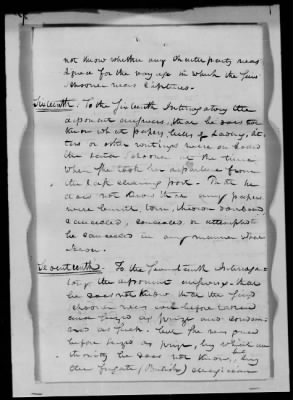 not know whether any Charter party was
signed for the voyage in which the said
Schooner was Captured.
Sixteenth. To the Sixteenth Interrogatory this
deponent answers, that he does not
know what papers, bills of Lading, let-
ters or other writings were on board
the said Schooner at the time
when she took her departure from
the last clearing port. That he
does not know that any papers
were burnt, torn, thrown overboard
cancelled, concealed or attempted
to be cancelled in any manner what-
soever.
Seventeenth. To the Seventeenth Interroga-
tory the deponent answers that
he does not know that the said
schooner was ever before
and seized as prize and condem-
ned as such. but she was
before seized as prize, by what au-
thority he does not know, by
the frigate (British)